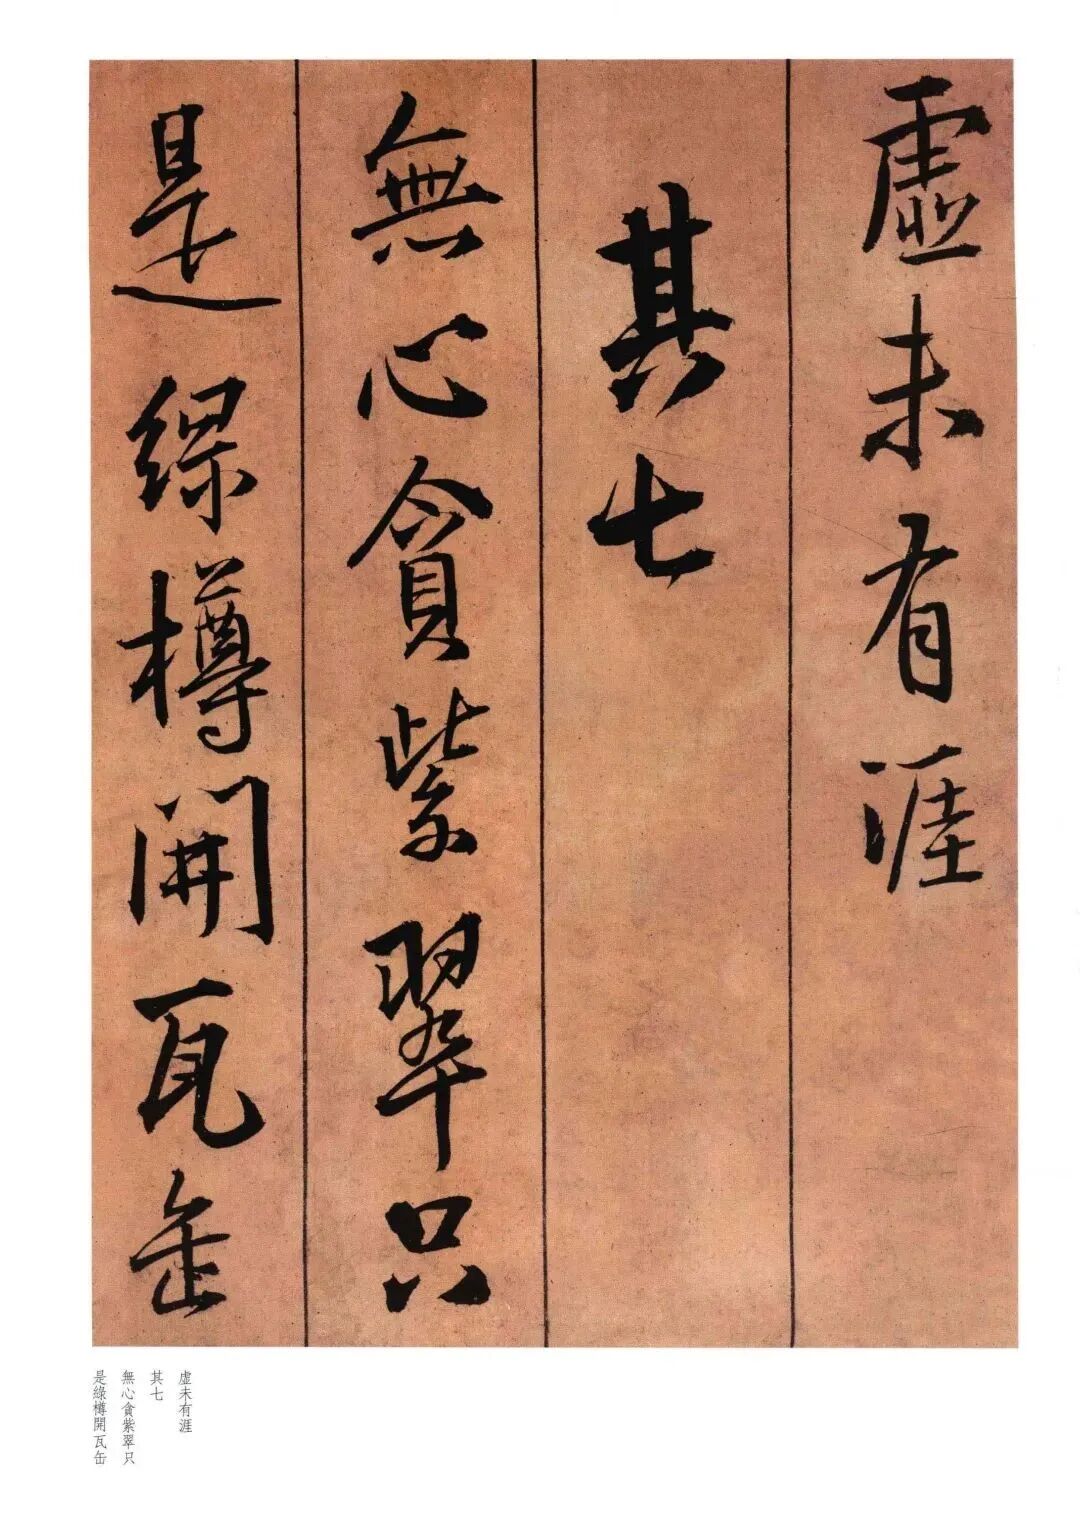 虛未有涯
其七
無心貪紫翠只
是綠樽開瓦缶
虛未有涯
其七
無心貪紫翠只
是綠樽開瓦缶